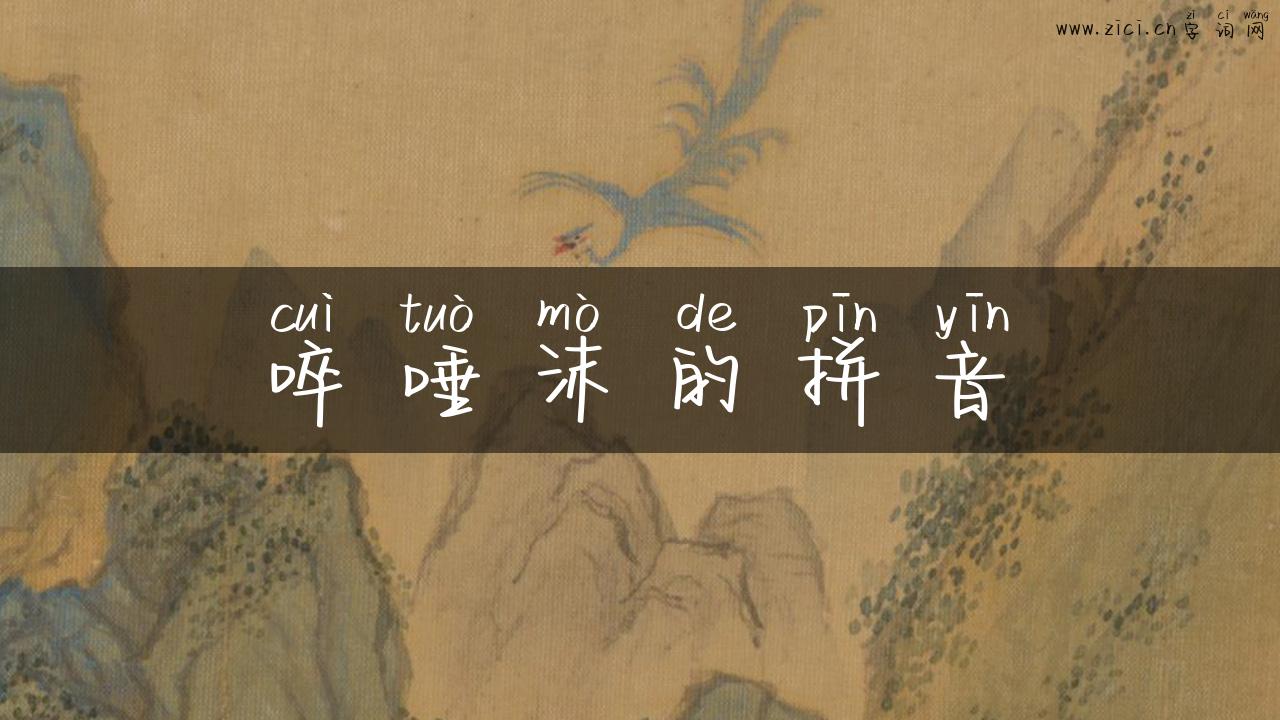 zì cí wǎng
www.zici.cn字词网
cuì tuò mò de pīn yīn
啐唾沫的拼音